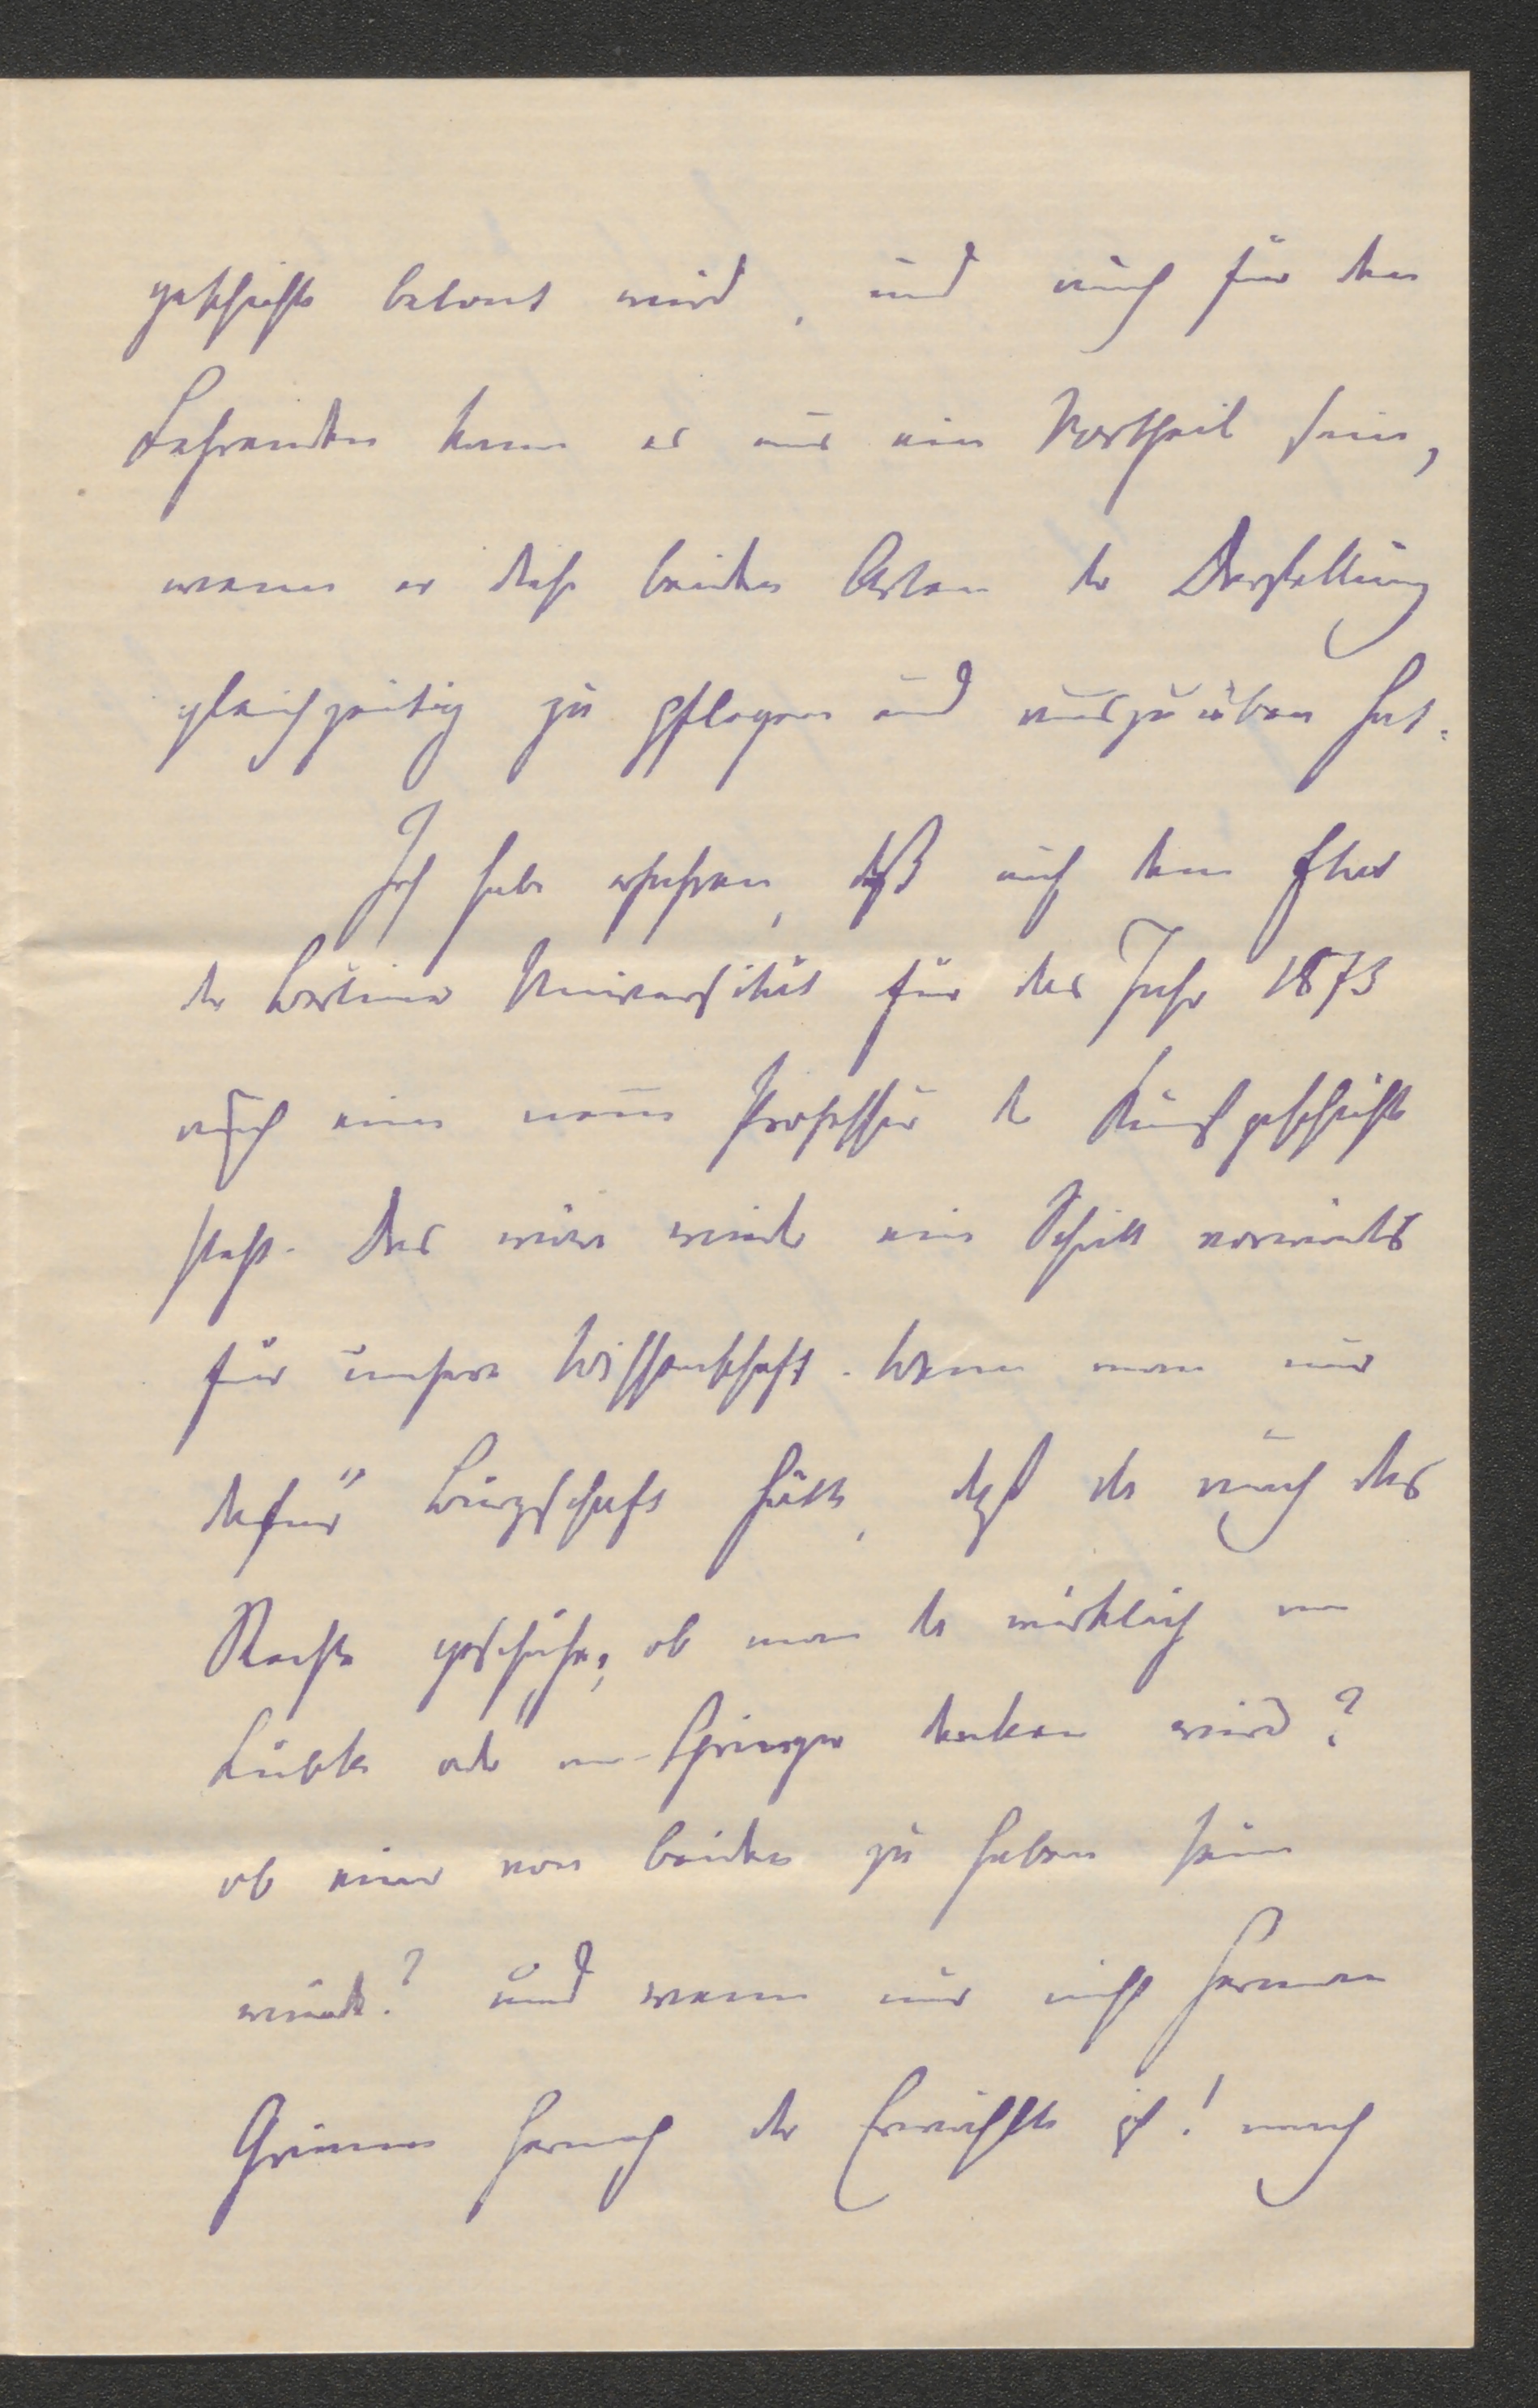 geschichte betont wird, und auch für den
Lehrenden kann es nur ein Vortheil sein,
wenn er diese beiden Arten der Darstellung
gleichzeitig zu pflegen und auszuüben hat.
Ich habe erfahren, daß auf dem Etat
der Berliner Universität für das Jahr 1873
auch eine neue Professur der Kunstgeschichte
steht. Das wäre wieder ein Schritt vorwärts
für unsere Wissenschaft. Wenn man nur
dafür Bürgschaft hätte, daß da auch das
Rechte geschähe; ob man da wirklich an
Lübke oder an Springer denken wird?
ob einer von beiden zu haben sein
würde? und wenn nur nicht Herman
Grimm hernach der Erwählte ist! nach